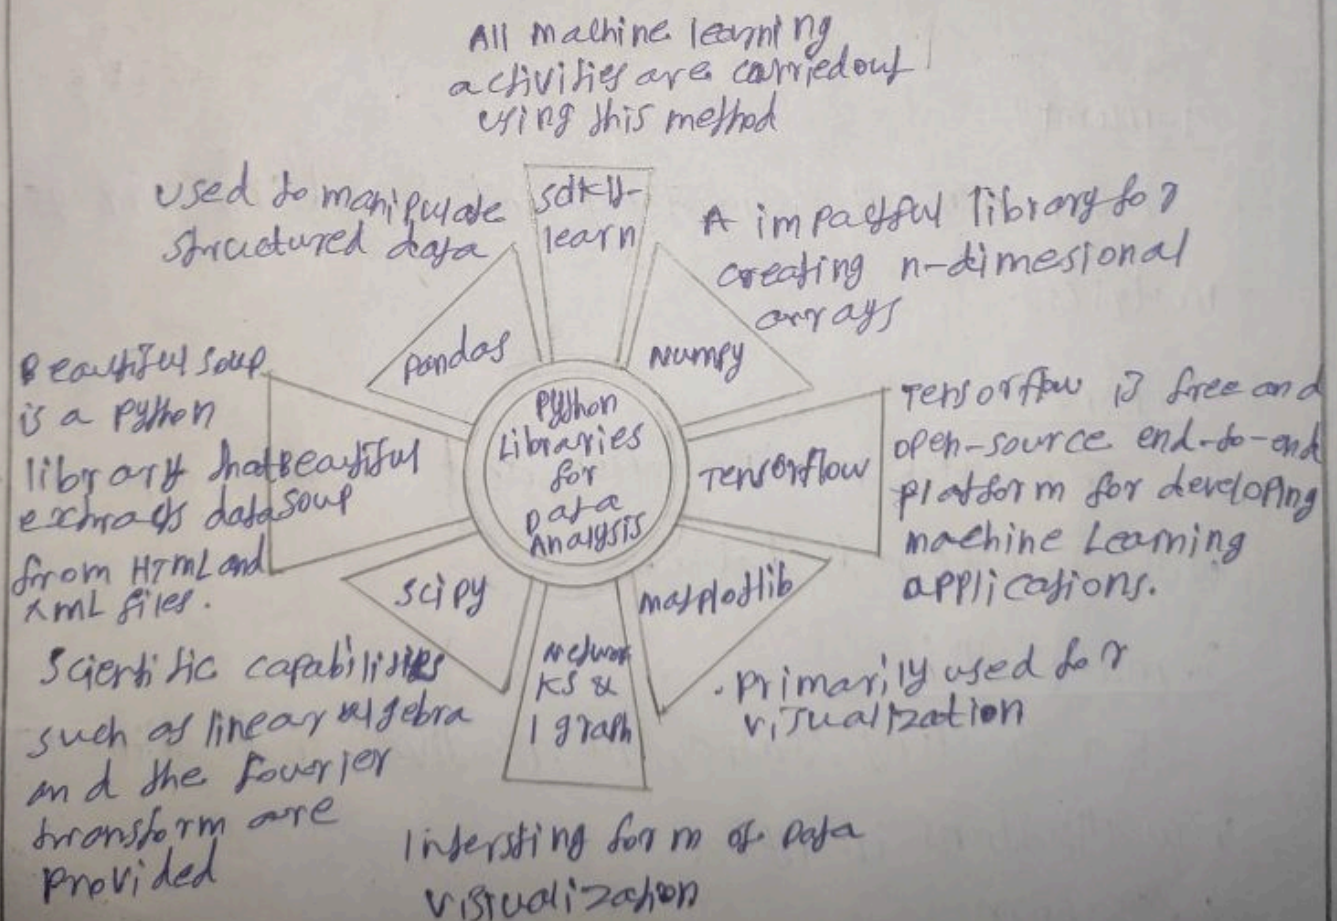 All machine learning
activities are carriedout
using this method
scikit-
learn
used to manipulate
structured data
pandas
A impactful library for
creating n-dimesional
arrays
Numpy
Beautiful soup
is a python
library that
extracts data
from HTML and
XML files.
Beautiful
soup
python
Libraries
for
Data
Analysis
Tensorflow
Tensorflow is free and
open-source end-to-end
platform for developing
machine Learning
applications.
scipy
Scientific capabilities
such as linear algebra
and the fourier
transform are
provided
Networ
ks &
I graph
Intersting form of Data
visualization
matplotlib
. primarily used for
visualization